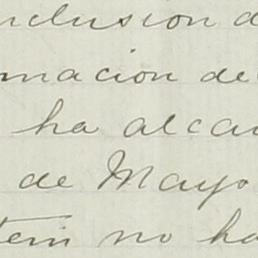 nclusion d
mación de
ha alca
de Mayo
tein no ha